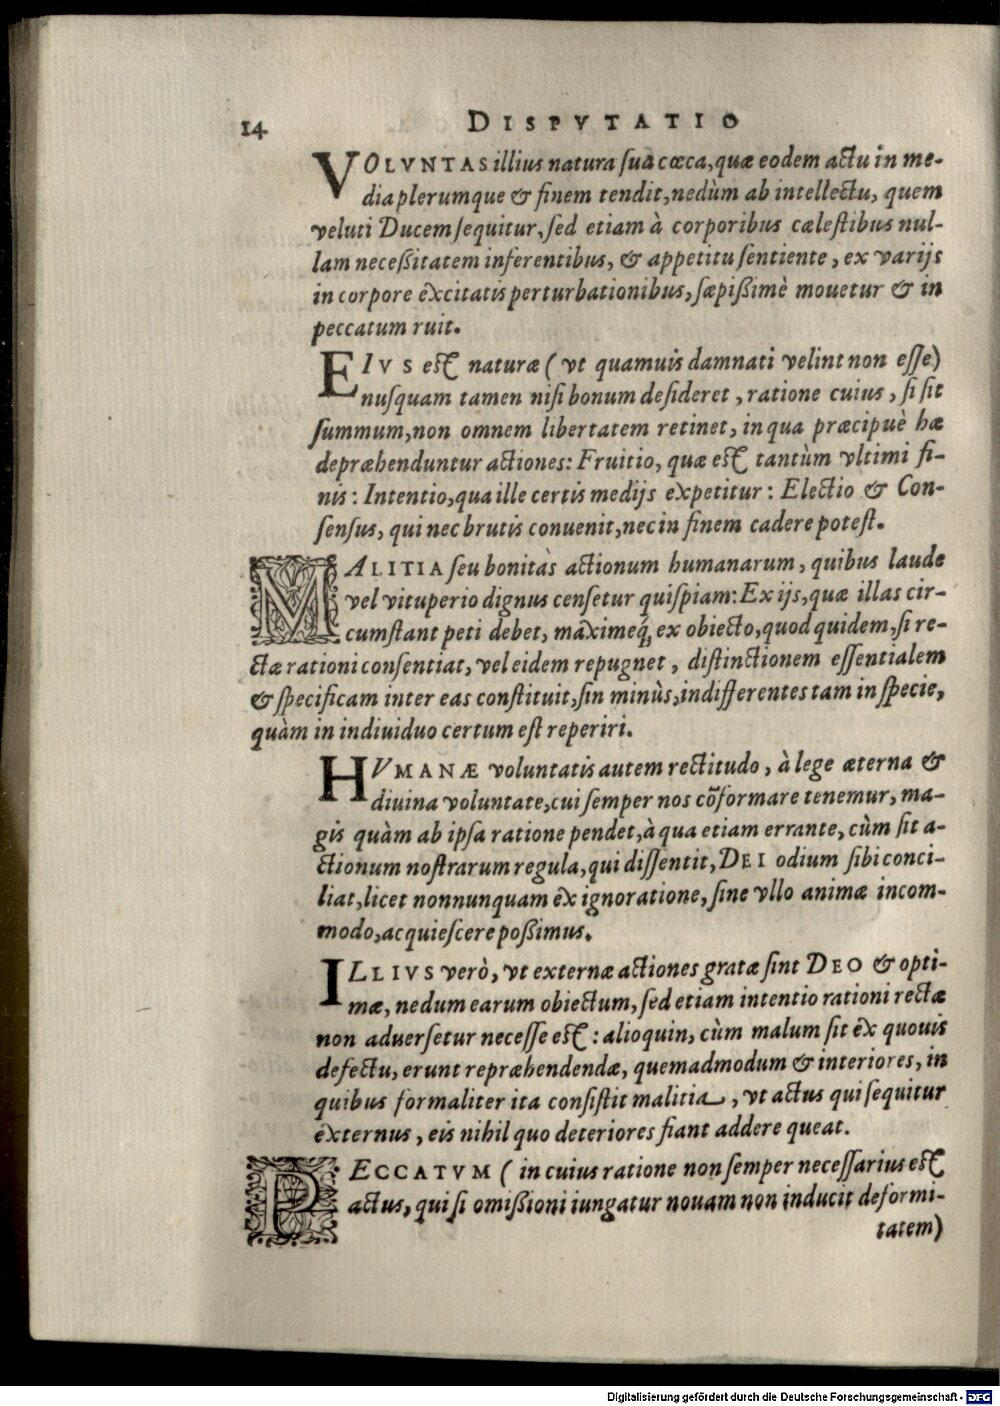 14 DISPVTATIO
VOLVNTAS illius natura ſua cœca, quæ eodem actu in me-
dia plerumque & finem tendit, nedùm ab intellectu, quem
veluti Ducem ſequitur, ſed etiam à corporibus cæleſtibus nul-
lam neceßitatem inferentibus, & appetitu ſentiente, ex varijs
in corpore excitatis perturbationibus, ſæpißimè mouetur & in
peccatum ruit.
EIVS eſt naturæ (vt quamuis damnati velint non eſſe)
nuſquam tamen niſi bonum deſideret, ratione cuius, ſi ſit
ſummum, non omnem libertatem retinet, in qua præcipuè hæ
depræhenduntur actiones: Fruitio, quæ eſt tantùm vltimi fi-
nis: Intentio, qua ille certis medijs expetitur: Electio & Con-
ſenſus, qui nec brutis conuenit, nec in finem cadere poteſt.
MALITIA ſeu bonitàs actionum humanarum, quibus laude
vel vituperio dignus cenſetur quiſpiam: Ex ijs, quæ illas cir-
cumſtant peti debet, maximeq́; ex obiecto, quod quidem, ſi re-
ctæ rationi conſentiat, vel eidem repugnet, diſtinctionem eſſentialem
& ſpecificam inter eas conſtituit, ſin minùs, indifferentes tam in ſpecie,
quàm in indiuiduo certum eſt reperiri.
HVMANÆ voluntatis autem rectitudo, à lege æterna &
diuina voluntate, cui ſemper nos cõformare tenemur, ma-
gis quàm ab ipſa ratione pendet, à qua etiam errante, cùm ſit a-
ctionum noſtrarum regula, qui diſſentit, DEI odium ſibi conci-
liat, licet nonnunquam ex ignoratione, ſine vllo animæ incom-
modo, acquieſcere poßimus.
ILLIVS verò, vt externæ actiones gratæ ſint DEO & opti-
mæ, nedum earum obiectum, ſed etiam intentio rationi rectæ
non aduerſetur neceſſe eſt: alioquin, cùm malum ſit ex quouis
defectu, erunt repræhendendæ, quemadmodum & interiores, in
quibus formaliter ita conſiſtit malitia, vt actus qui ſequitur
externus, eis nihil quo deteriores fiant addere queat.
PECCATVM (in cuius ratione non ſemper neceſſarius eſt
actus, qui ſi omißioni iungatur nouam non inducit deformi-
tatem)
Digitalisierung gefördert durch die Deutsche Forschungsgemeinschaft - DFG